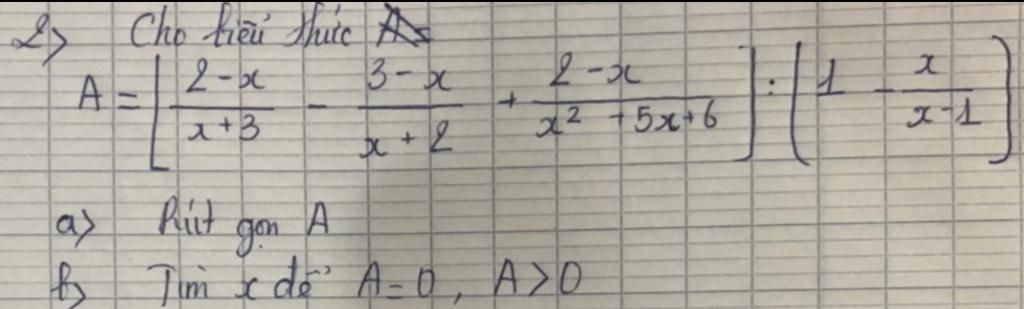 2> Cho biểu thức A
A = [ (2-x)/(x+3) - (3-x)/(x+2) + (2-x)/(x² + 5x + 6) ] : ( 1 - x/(x-1) )
a> Rút gọn A
b> Tìm x để A = 0, A > 0